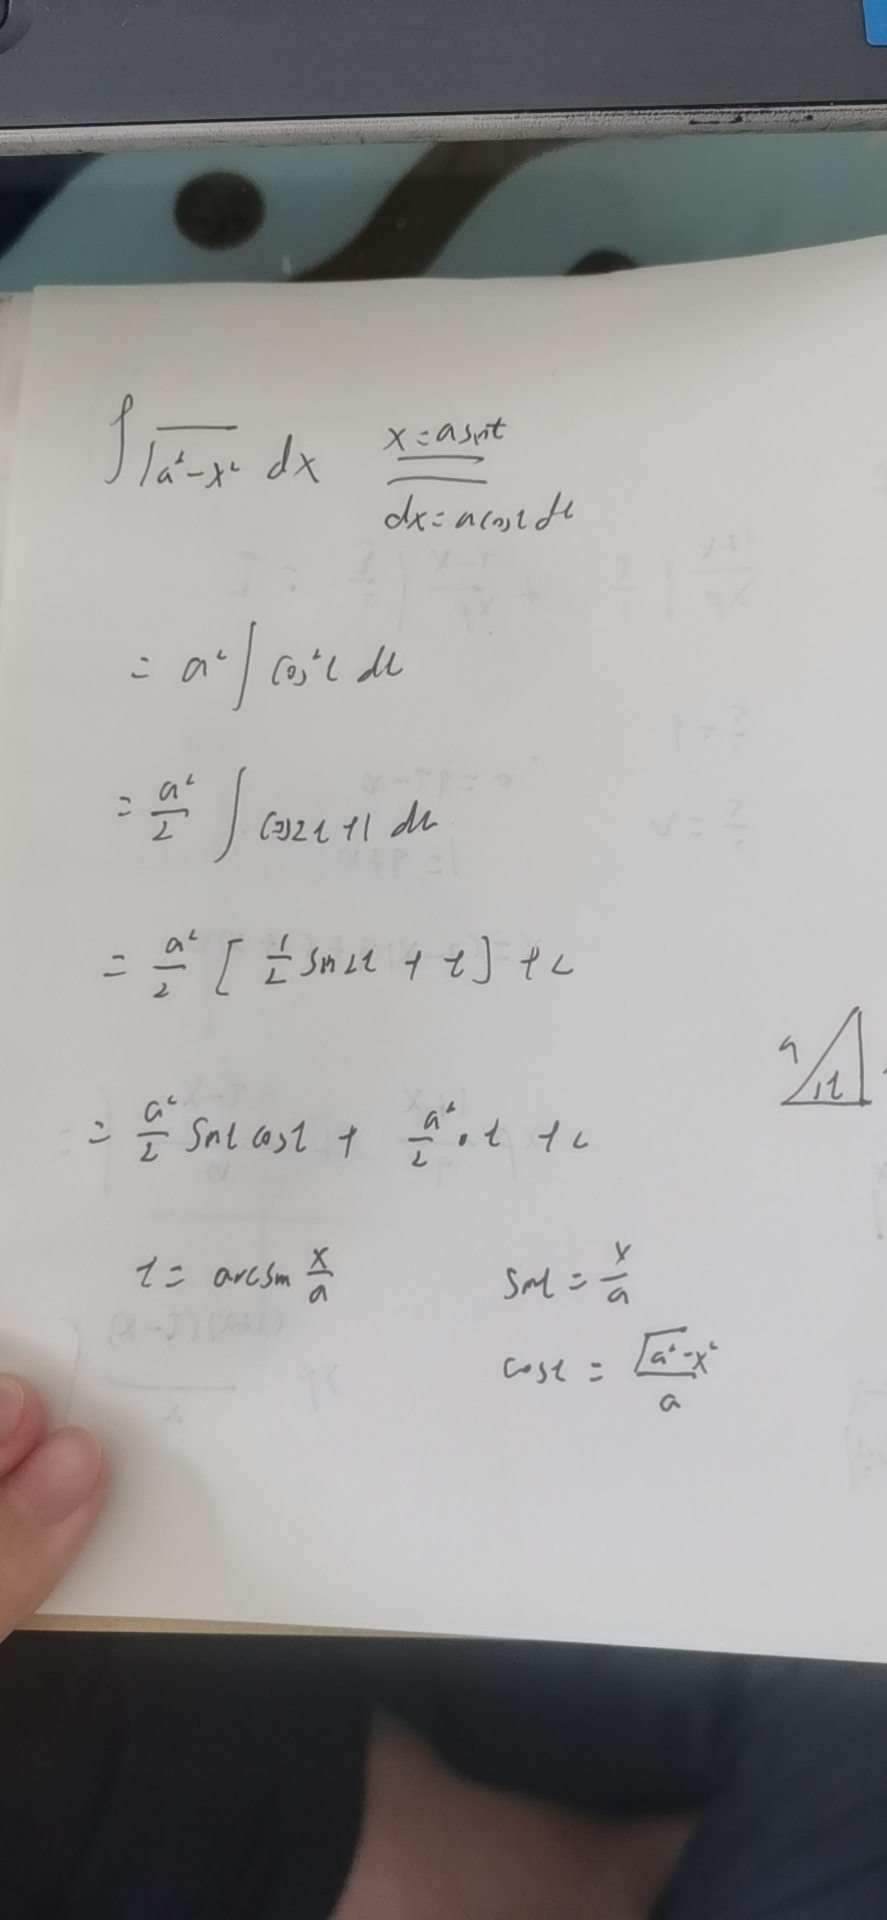 ∫√(a²-x²) dx  x=asint
dx=acost dt
= a² ∫ cos²t dt
= a²/2 ∫ cos2t+1 dt
= a²/2 [ 1/2 sin2t + t ] + c
a
t
= a²/2 sint cost + a²/2 · t + c
t = arcsin x/a  sint = x/a
cost = √(a²-x²)/a